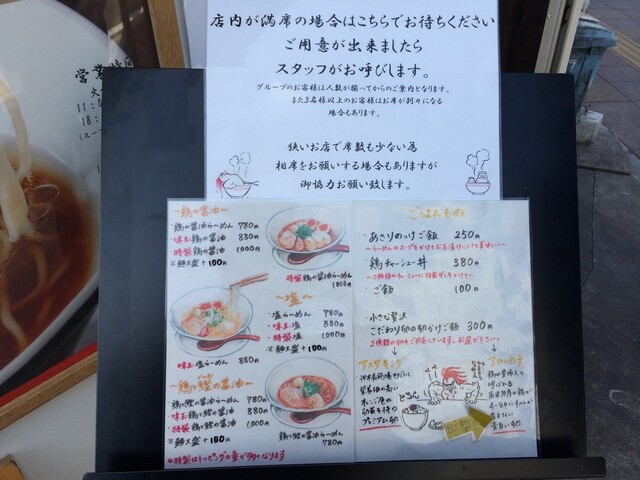 営業時間
11:0
18:
店内が満席の場合はこちらでお待ちください
ご用意が出来ましたら
スタッフがお呼びします。
グループのお客様は人数が揃ってからのご案内となります。
また3名様以上のお客様はお席が別々になる
場合もあります。
狭いお店で席数も少ない為
相席をお願いする場合もありますが
御協力お願い致します。
～鶏の醤油～
・鶏の醤油らーめん 780円
・味玉鶏の醤油 880円
・特製鶏の醤油 1,000円
※麺大盛 +100円
特製鶏の醤油らーめん
1000円
～塩～
・塩らーめん 780円
・味玉塩 880円
・特製塩 1,000円
※麺大盛 +100円
味玉塩らーめん 880円
～鶏と鰹の醤油～
・鶏と鰹の醤油 780円
・味玉鶏と鰹の醤油 880円
・特製鶏と鰹の醤油 1,000円
※麺大盛 +100円
鶏と鰹の醤油らーめん
780円
*特製はトッピングの量が多くなります
ごはんもの
・あさりのっけご飯 250円
～らーめんのスープをかけてお茶漬けにしても美味しい～
・鶏チャーシュー丼 380円
・ご飯 100円
・小さな贅沢
こだわり卵の卵かけご飯 300円
2種類の卵をご用意しています。お選び下さい。
アスタキング
栄養価の高い
オレンジ色の
卵黄を持つ
プレミアム卵
とろん
アローカナ
鶏の
呼ばれる
南米原産の鶏が